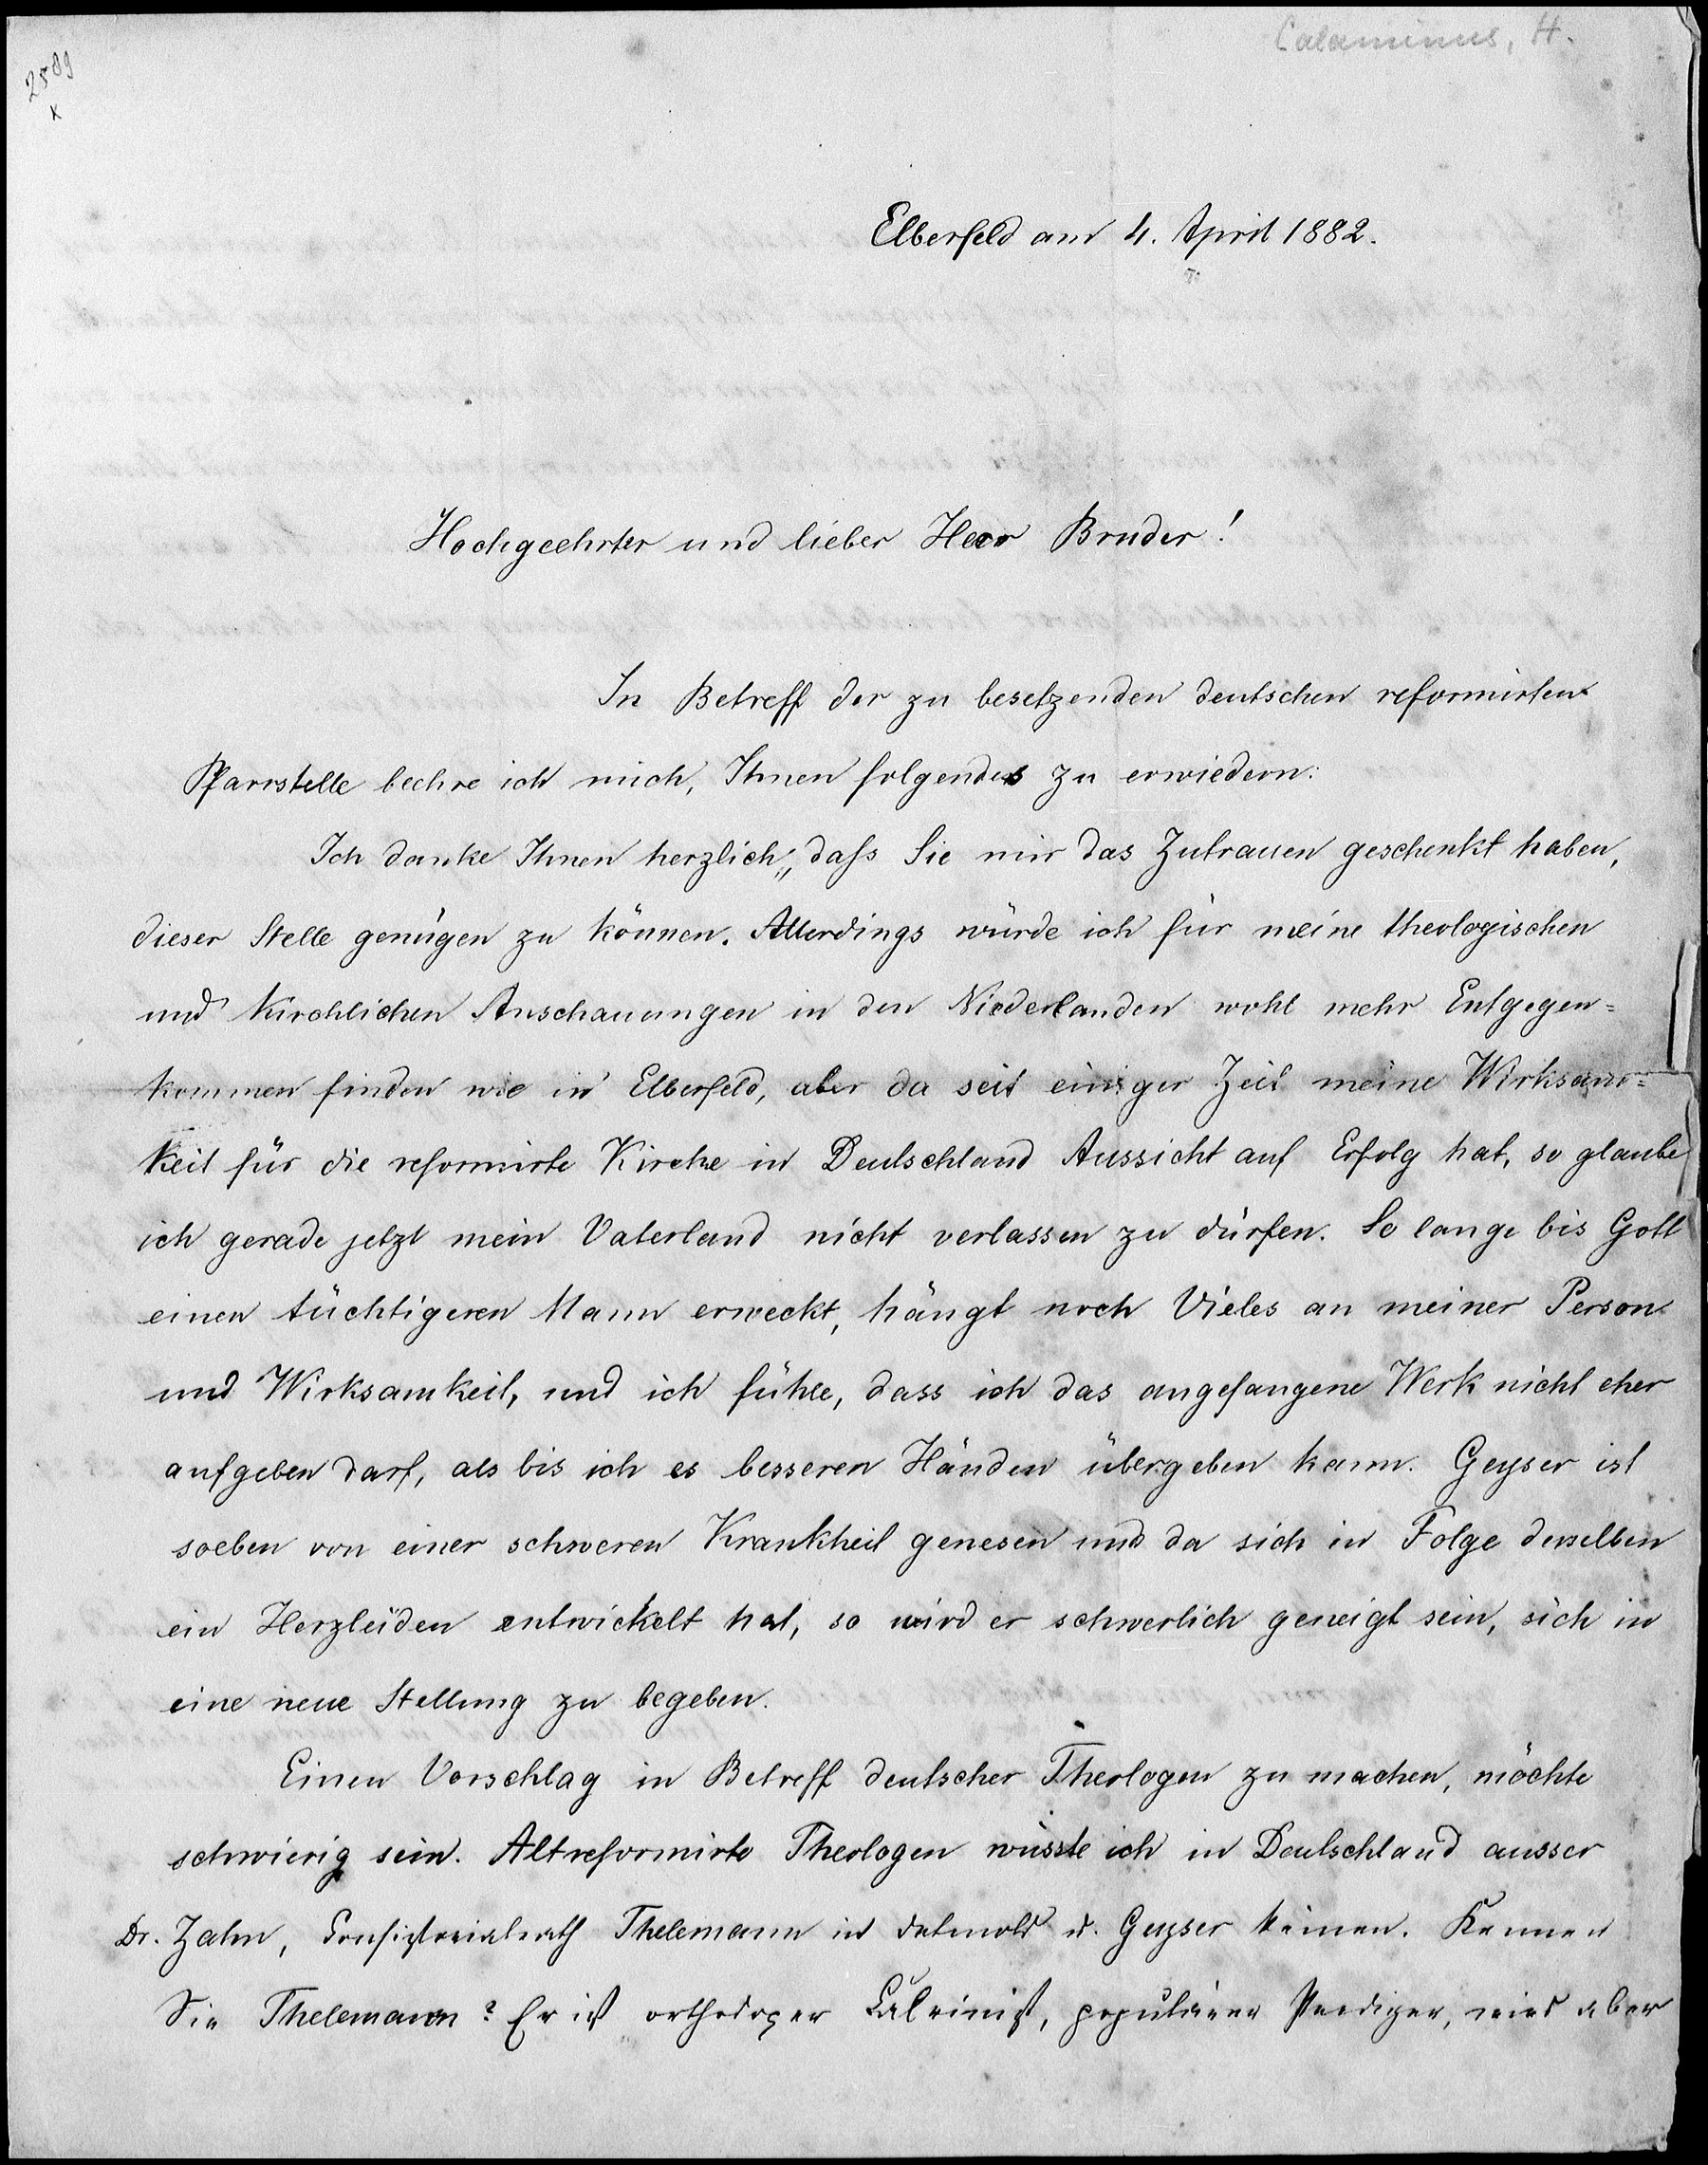 Calaminus, H.
2589
x
Elberfeld am 4. April 1882.
Hochgeehrter und lieber Herr Bruder!
In Betreff der zu besetzenden deutschen reformirten
Pfarrstelle beehre ich mich, Ihnen folgendes zu erwiedern:
Ich danke Ihnen herzlich, daſs Sie mir das Zutrauen geschenkt haben,
dieser Stelle genügen zu können. Allerdings würde ich für meine theologischen
und kirchlichen Anschauungen in den Niederlanden wohl mehr Entgegen=
kommen finden wie in Elberfeld, aber da seit einiger Zeit meine Wirksam=
keit für die reformirte Kirche in Deutschland Aussicht auf Erfolg hat, so glaube
ich gerade jetzt mein Vaterland nicht verlassen zu dürfen. So lange bis Gott
einen tüchtigeren Mann erweckt, hängt noch Vieles an meiner Person
und Wirksamkeit, und ich fühle, dass ich das angefangene Werk nicht eher
aufgeben darf, als bis ich es besseren Händen übergeben kann. Geyser ist
soeben von einer schweren Krankheit genesen und da sich in Folge derselben
ein Herzleiden entwickelt hat, so wird er schwerlich geneigt sein, sich in
eine neue Stellung zu begeben.
Einen Vorschlag in Betreff deutscher Theologen zu machen, möchte
schwierig sein. Altreformirte Theologen wüsste ich in Deutschland ausser
Dr. Zahn, Consistorialrath Thelemann in Detmold u. Geyser keinen. Kennen
Sie Thelemann? Er ist orthodoxer Calvinist, populärer Prediger, wird aber